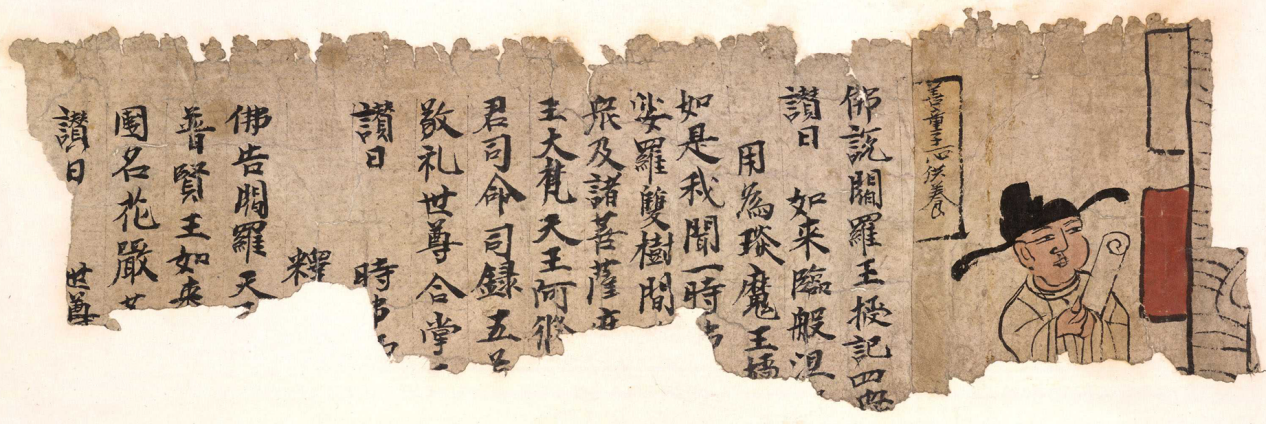 善童子一心供養
佛說閻羅王授記四眾
讚曰 如来臨般涅
因為琰魔王
如是我聞一時佛
娑羅雙樹間
眾及諸菩薩摩
王大梵天王阿脩
君司命司録五道
敬礼世尊合掌
讚曰 時佛
釋
佛告閻羅天
普賢王如来
國名花嚴菩
讚曰 世尊